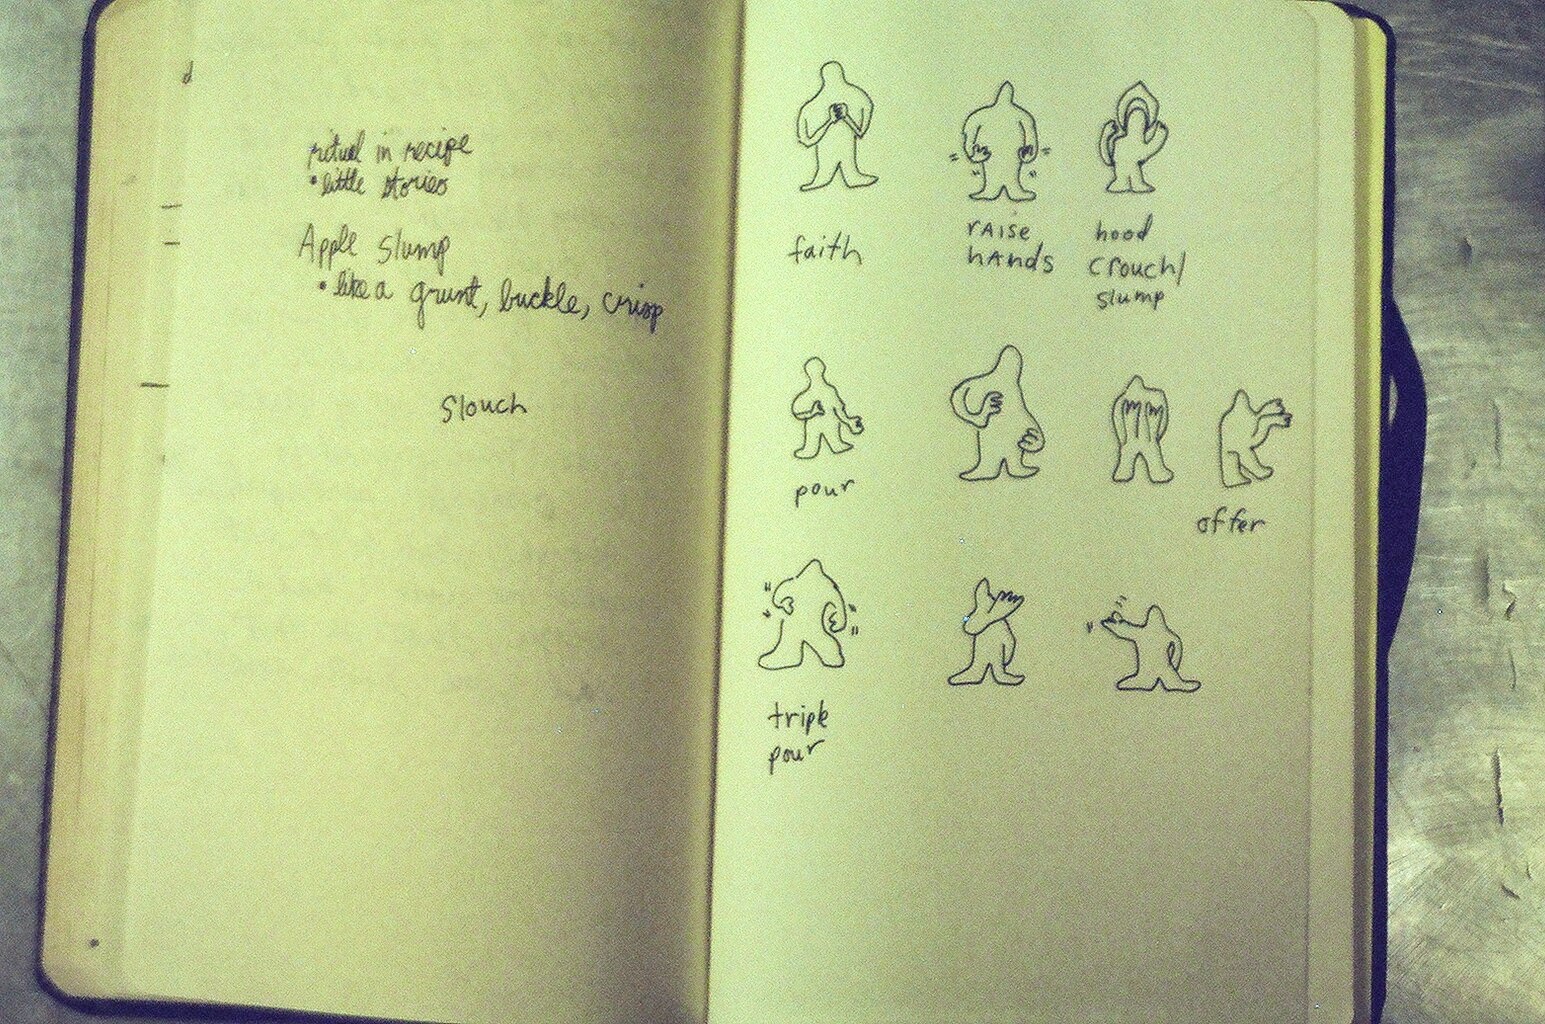 ritual in recipe
• little stories
Apple slump
• like a grunt, buckle, crisp
slouch
faith
rAise
hAnds
hood
crouch/
slump
pour
offer
triple
pour